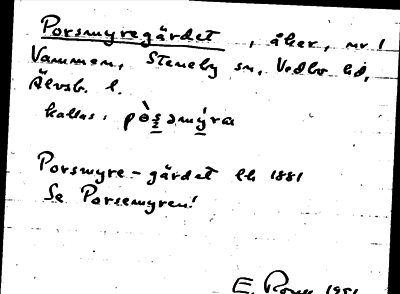 Porsmyregärdet, åker, nr 1
Vammem, Steneby sn, Vedbo hd,
Älvsb. l.
kallas:
Porsmyre-gärdet lh 1881
Se Porsemyren!
E. 1951